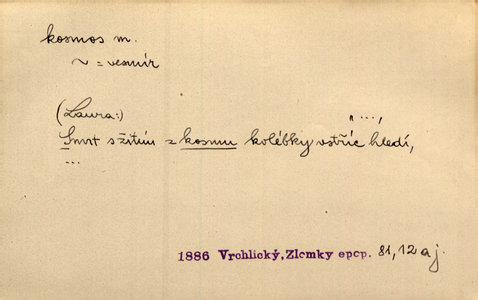 kosmos m.
~ = vesmír
(Laura:)
„ ...,
Smrt s žitím z kosmu kolébky vstříc hledí,
...
1886 Vrchlický, Zlomky epop. 81, 12 aj.